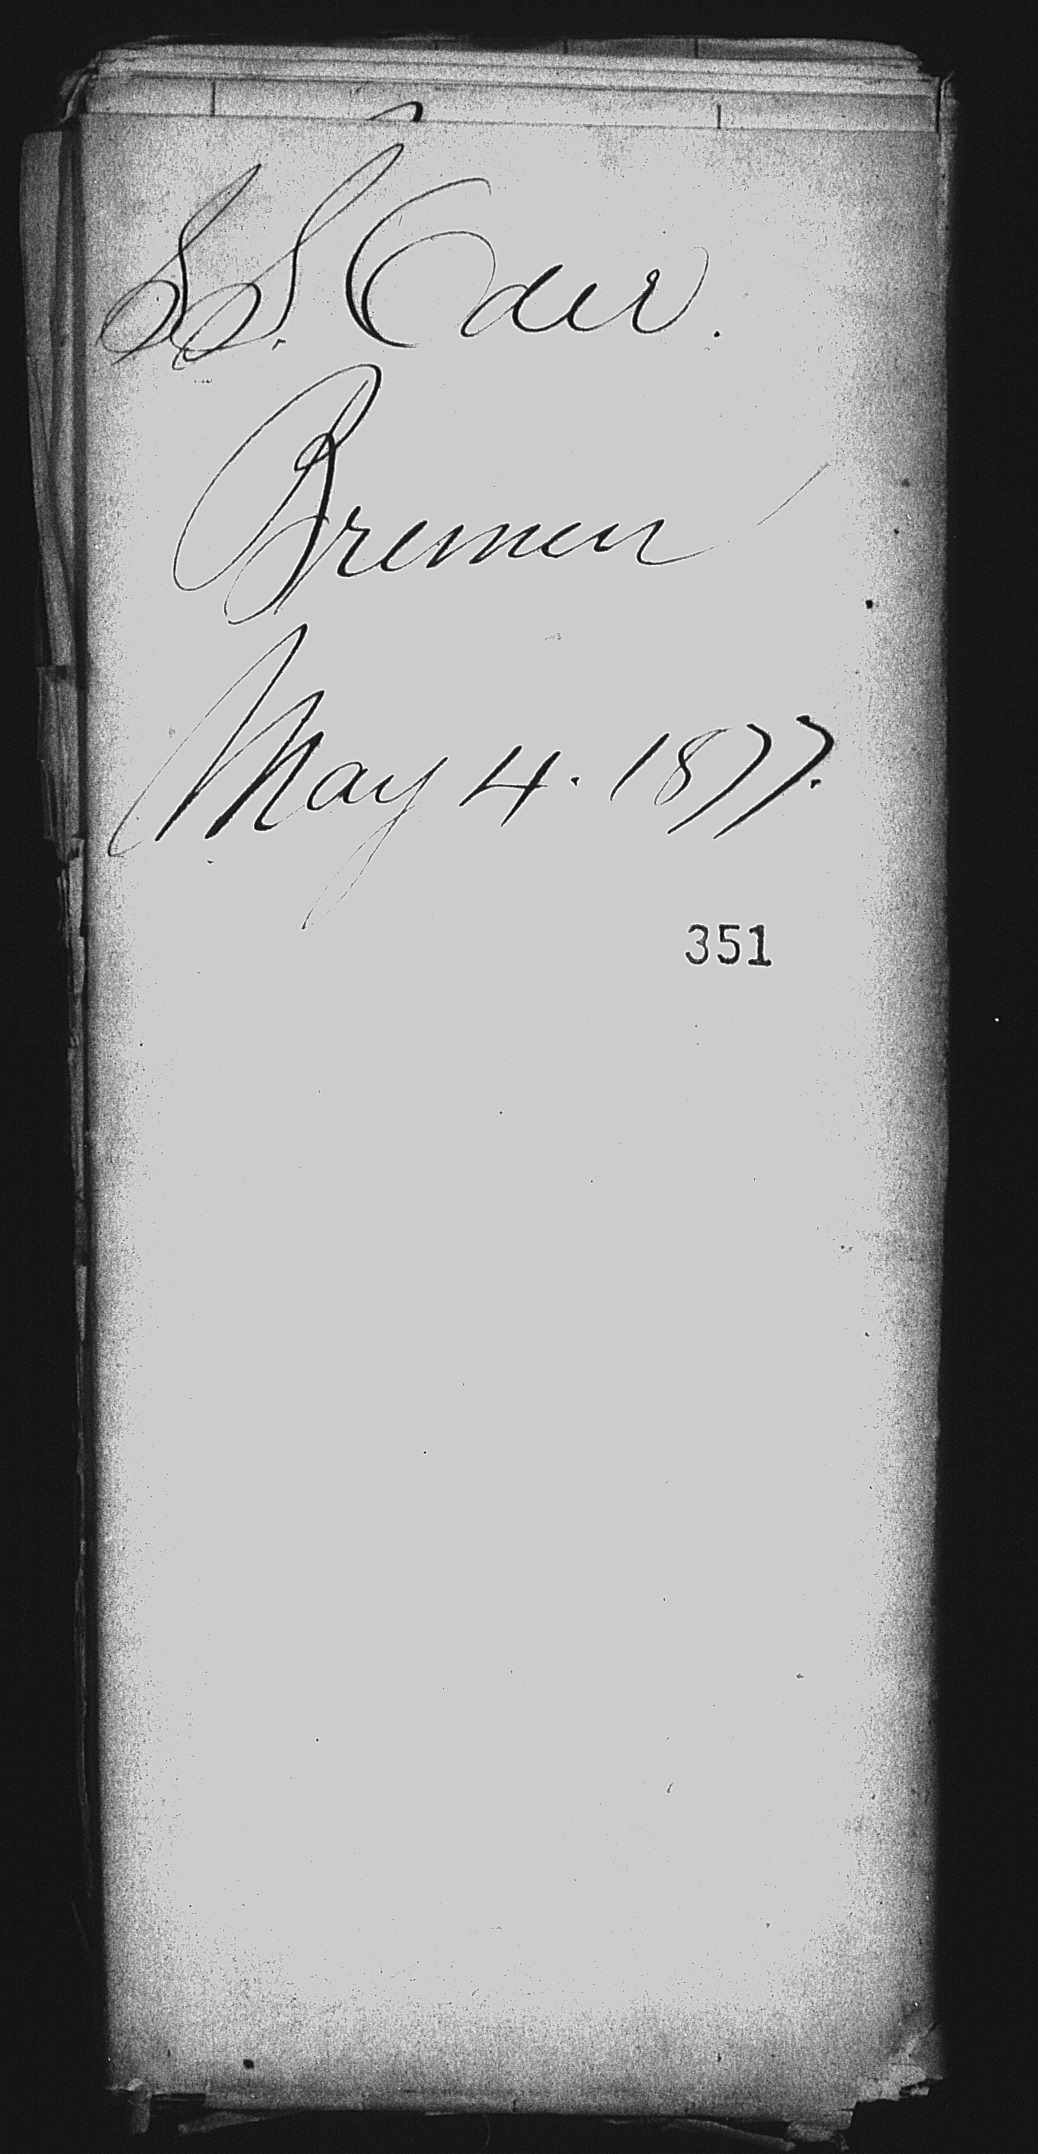 S.S. Oder.
Bremen
May 4. 1877.
351